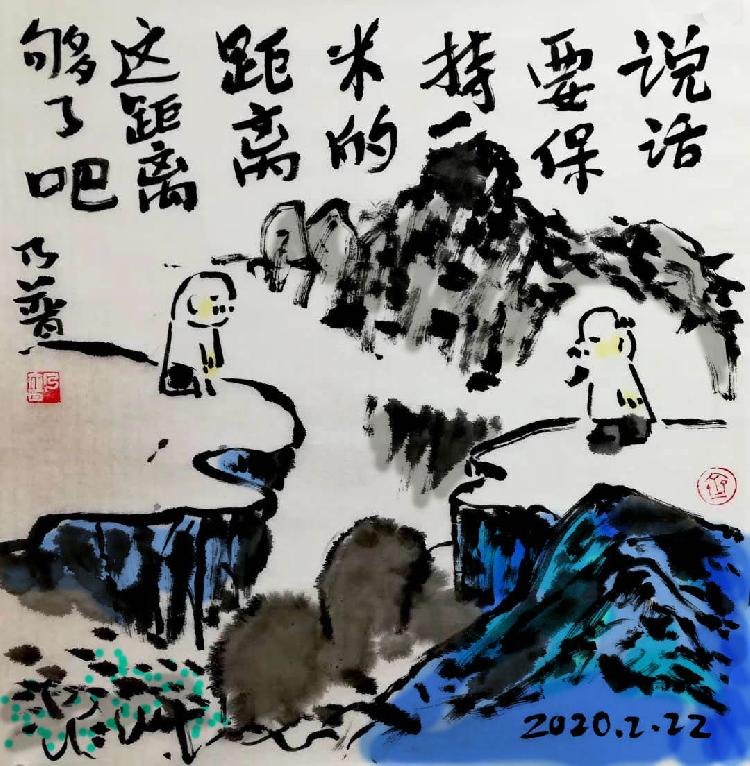 说话
要保
持一
米的
距离
这距离
够了吧
乃普
2020.2.22